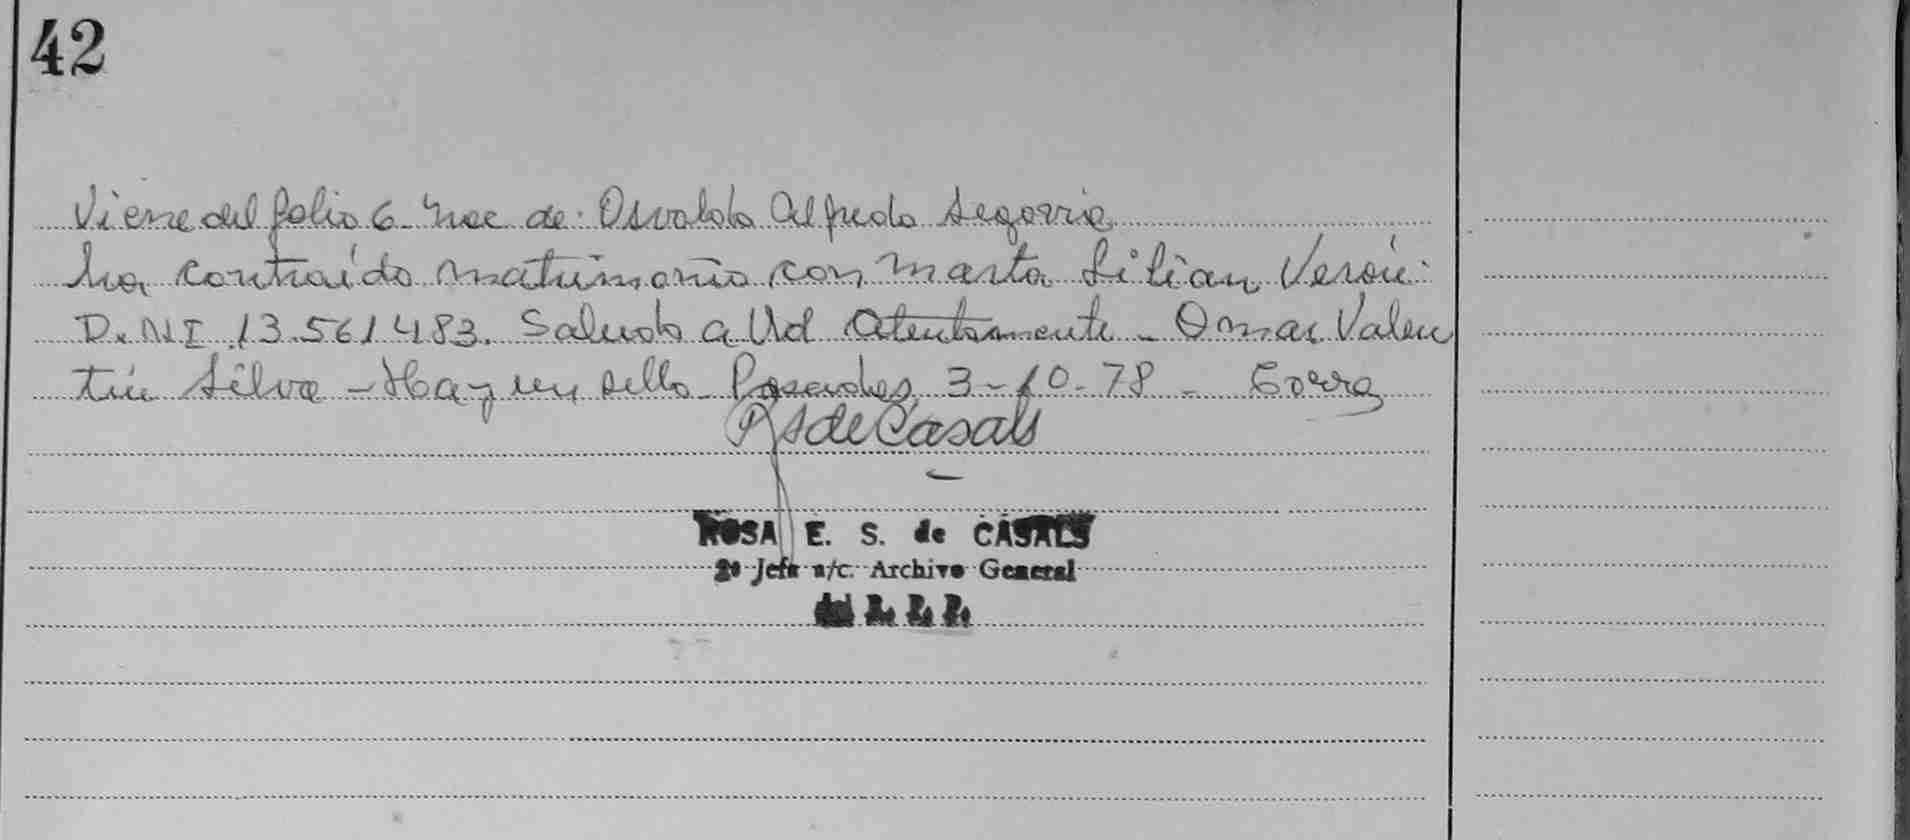 42
Viene del folio 6 nac de: Osvaldo Alfredo Segovia
ha contraído matrimonio con Marta Lilian Verón:
D.N.I. 13.561483. Saludo a Ud atentamente - Omar Valen
tín Silva - Hay un sello Posadas, 3-10-78 -
RSdeCasals
ROSA E. S. de CASALS
2º Jefa a/c. Archivo General
del